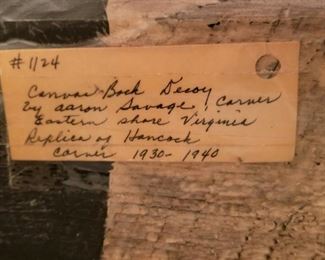 #1124
Canvas Back Decoy
by Aaron Savage, Carver
Eastern Shore Virginia
Replica of Hancock
Corner 1930-1940